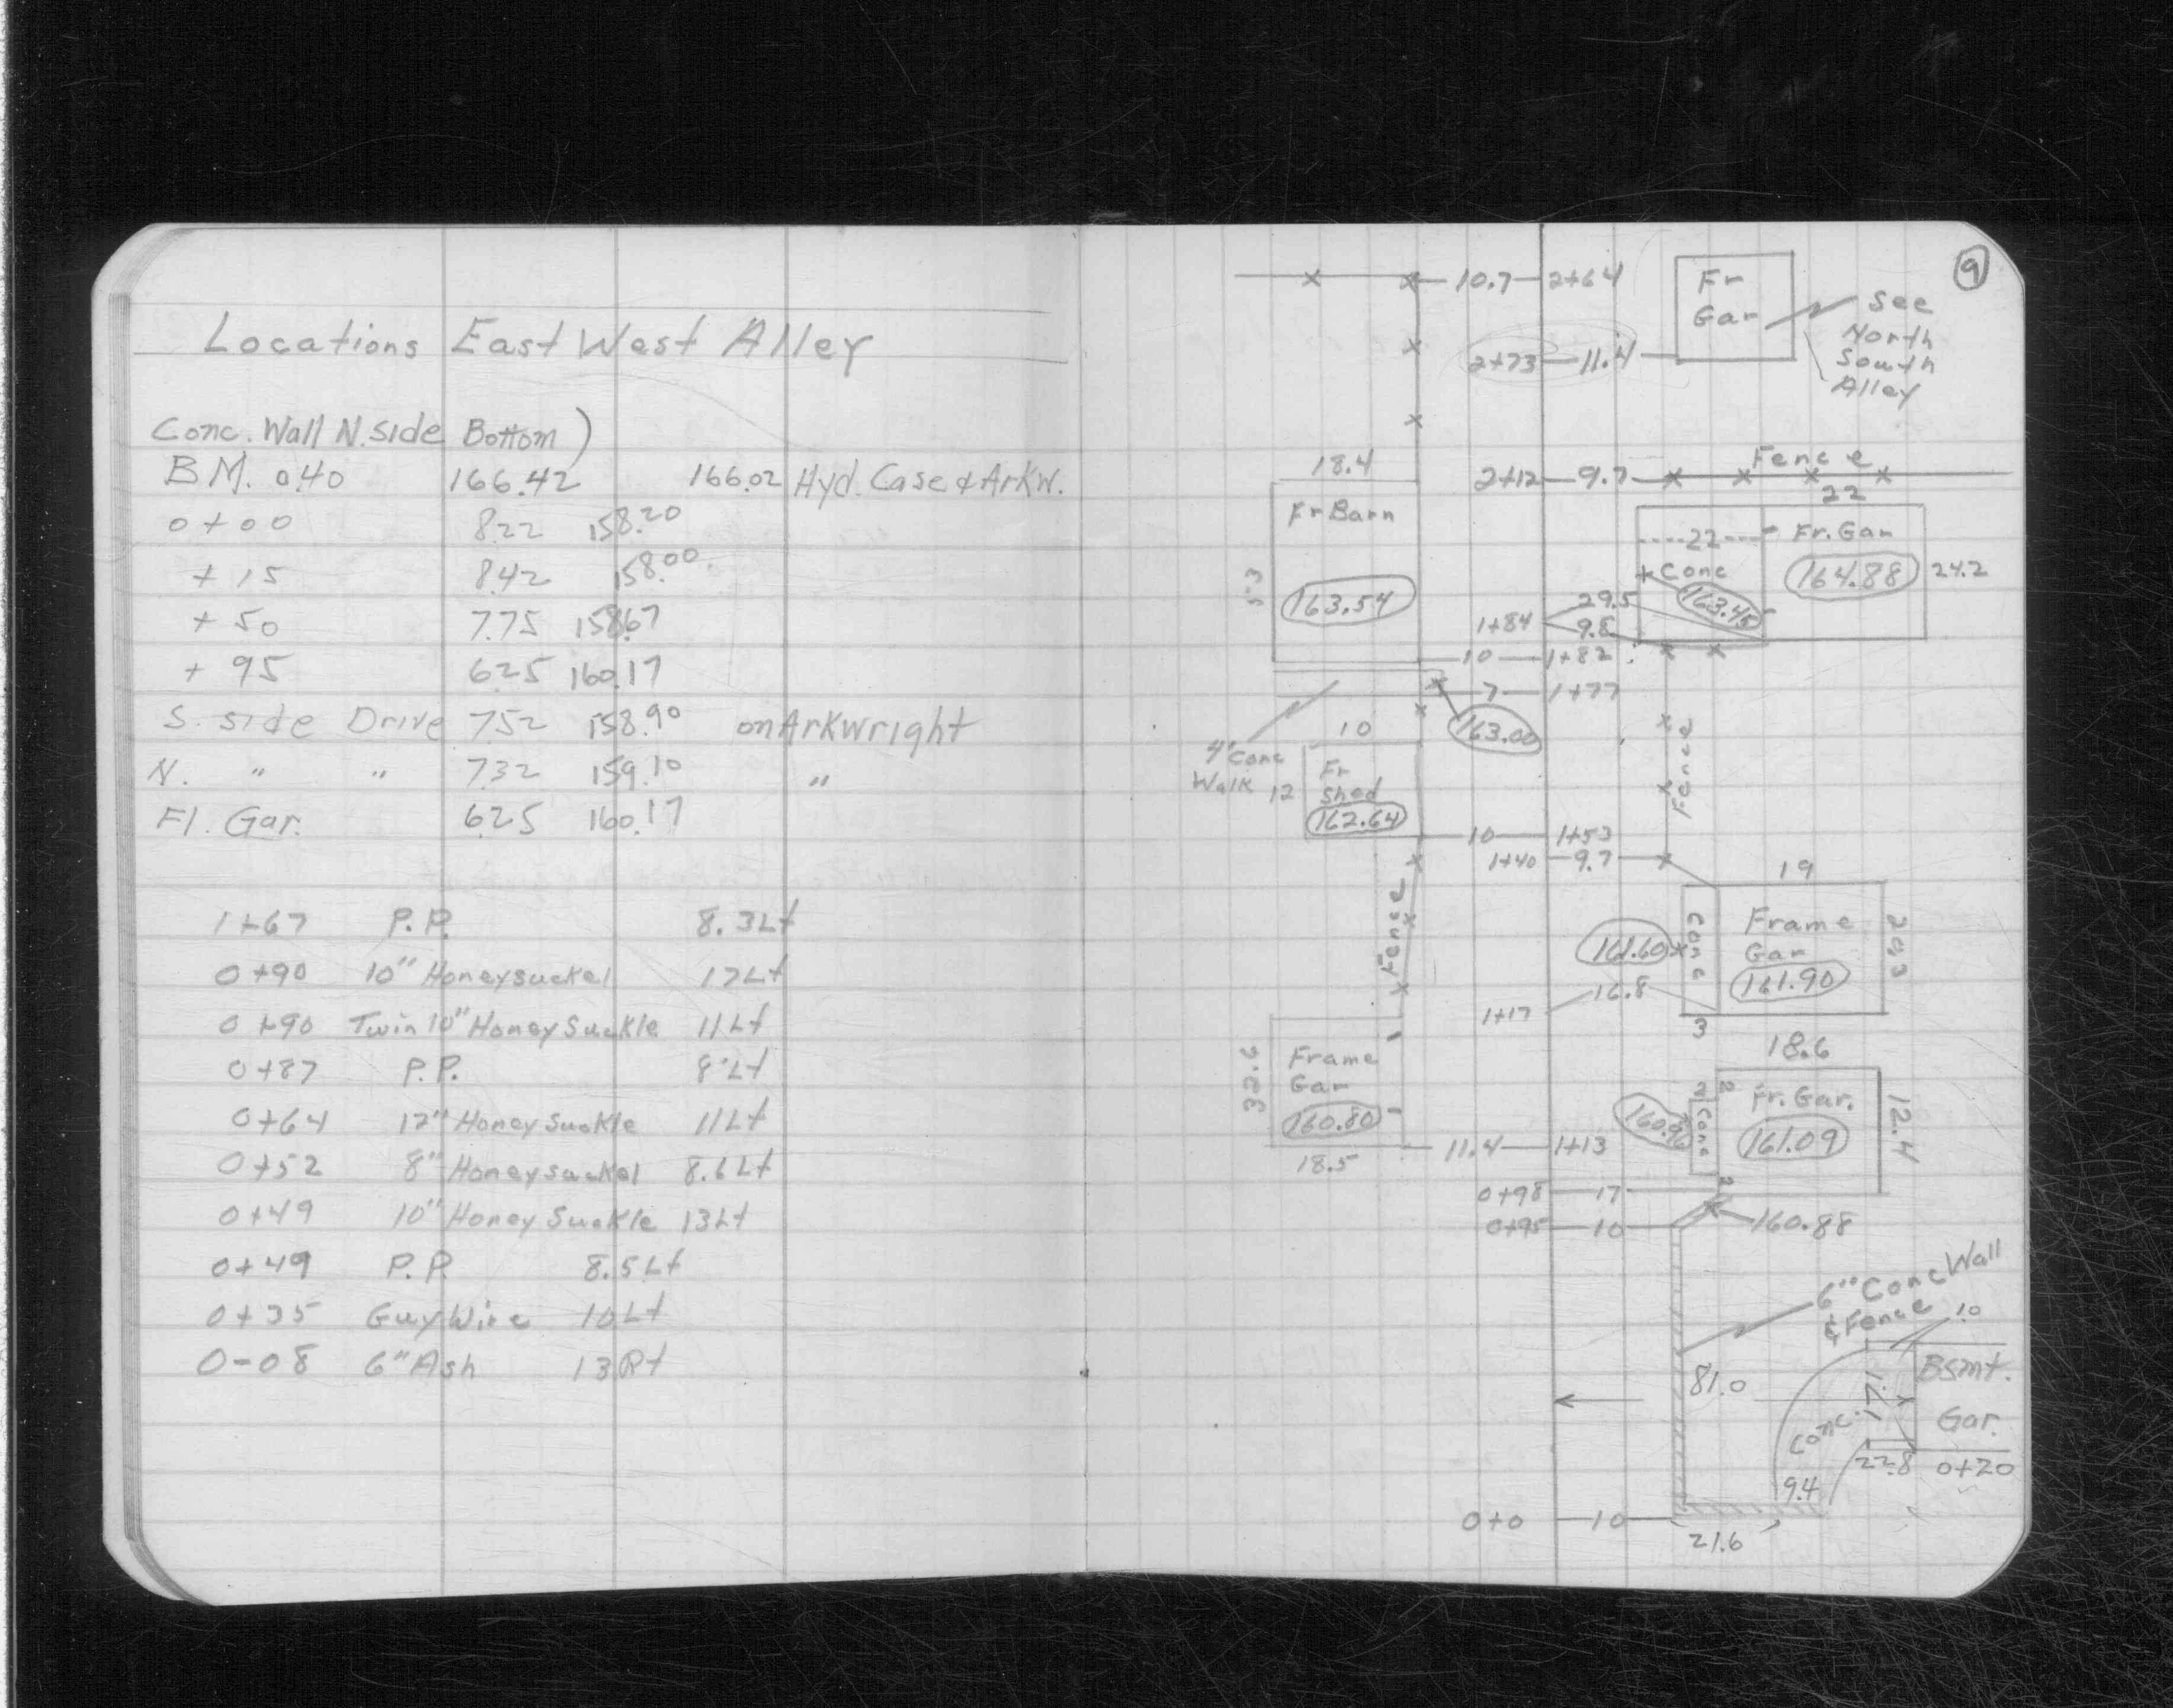 Locations East West Alley
Conc. Wall N. Side Bottom)
BM. 0.40 166.42 166.02 Hyd. Case & Arkw.
0+00 8.22 158.20
+15 8.42 158.00
+50 7.75 158.67
+95 6.25 160.17
S. side Drive 7.52 158.90 on Arkwright
N. " " 7.32 159.10 "
Fl. Gar. 6.25 160.17
1+67 P.P. 8.3 Lt
0+90 10" Honeysuckel 17 Lt
0+90 Twin 10" Honey Suckle 11 Lt
0+87 P.P. 8' Lt
0+64 12" Honey Suckle 11 Lt
0+52 8" Honeysuckel 8.6 Lt
0+49 10" Honey Suckle 13 Lt
0+49 P.P. 8.5 Lt
0+35 Guy Wire 10 Lt
0-08 6" Ash 13 Rt
9
10.7 2+64
Fr
Gar
See
North
South
Alley
2+73 11.4
Fence
18.4
2+12 9.7
22
Fr Barn
22
Fr. Gar
Conc
164.88
24.2
163.54
163.45
29.5
1+84
9.8
10 1+82
7 1+77
163.00
4' Conc
Walk
10
Fr
Shed
12
162.64
Fence
10 1+53
1+40 9.7
19
Fence
Conc
Frame
Gar
161.90
20.3
161.60
16.8
1+17
3
18.6
Frame
Gar
160.80
18.5
11.4 1+13
2
2
Conc
Fr. Gar.
161.09
12.4
0+98 17
2
0+95 10
160.88
6" Conc Wall
& Fence
10
81.0
Bsmt.
Gar.
17.1
Conc.
22.8 0+20
9.4
0+0 10
21.6